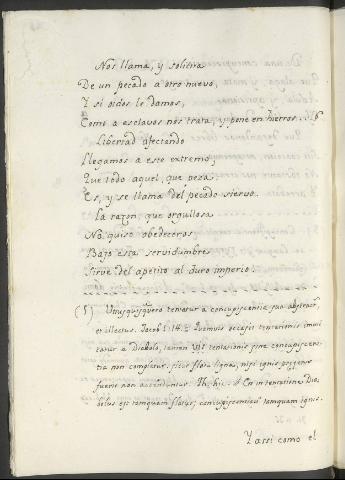 Nos llama, y solicita
De un pecado a otro nuevo,
Y si oidos le damos,
Como a esclavos nos trata, y pone en hierros... 16
Libertad afectando
Llegamos a este extremo;
Que todo aquel, que peca
Es, y se llama del pecado siervo.
La razon, que orgullosa
No quiso obedeceros
Bajo esta servidumbre
Sirve del apetito al duro imperio.
(5) Unusquisque tentatur a concupiscentia sua abstract,
et illectus. Jacob 1. 14.
tatur a Diabolo, tamen tentationis sine concupiscen-
tia non completur. sicut flata ligna, nisi ignis
fuerit non accenduntur. Th. hic. In tentatione Dia-
bolus est tamquam flatus, concupiscentia tamquam ignis.
Y assi como el